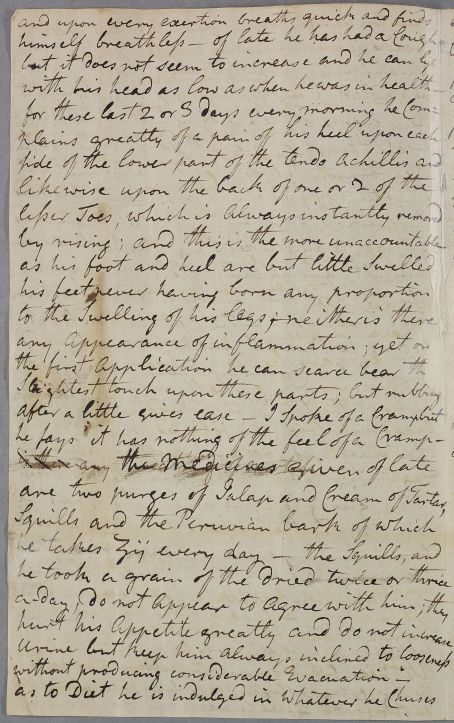 and upon every exertion breaths quick and finds
himself breathless – of late he has had a Cough
but it does not seem to increase and he can ly
with his head as low as when he was in health –
for these last 2 or 3 days every morning he Com=
plains greatly of a pain of his heel upon each
side of the lower part of the tendo Achillis and
likewise upon the back of one or 2 of the
lesser Toes, which is always instantly removed
by rising; and this is the more unaccountable
as his foot and heel are but little Swelled
his feet never having born any proportion
to the Swelling of his legs; neither is there
any appearance of inflammation; yet on
the first Application he can scarce bear the
Slightest touch upon these parts; but rubbing
after a little gives ease – I Spoke of a Cramp but
he says it has nothing of the feel of a Cramp –
the Medicines given of late
are two purges of Jalap and Cream of Tartar,
Squills and the Peruvian bark of which
he takes ʒij every day – the Squills, and
he took a grain of the dried twice or thrice
a-day, do not appear to agree with him; they
hurt his Appetite greatly and do not increase
Urine but keep him always inclined to looseness
without producing considerable Evacuation –
as to Diet he is indulged in whatever he Chuses